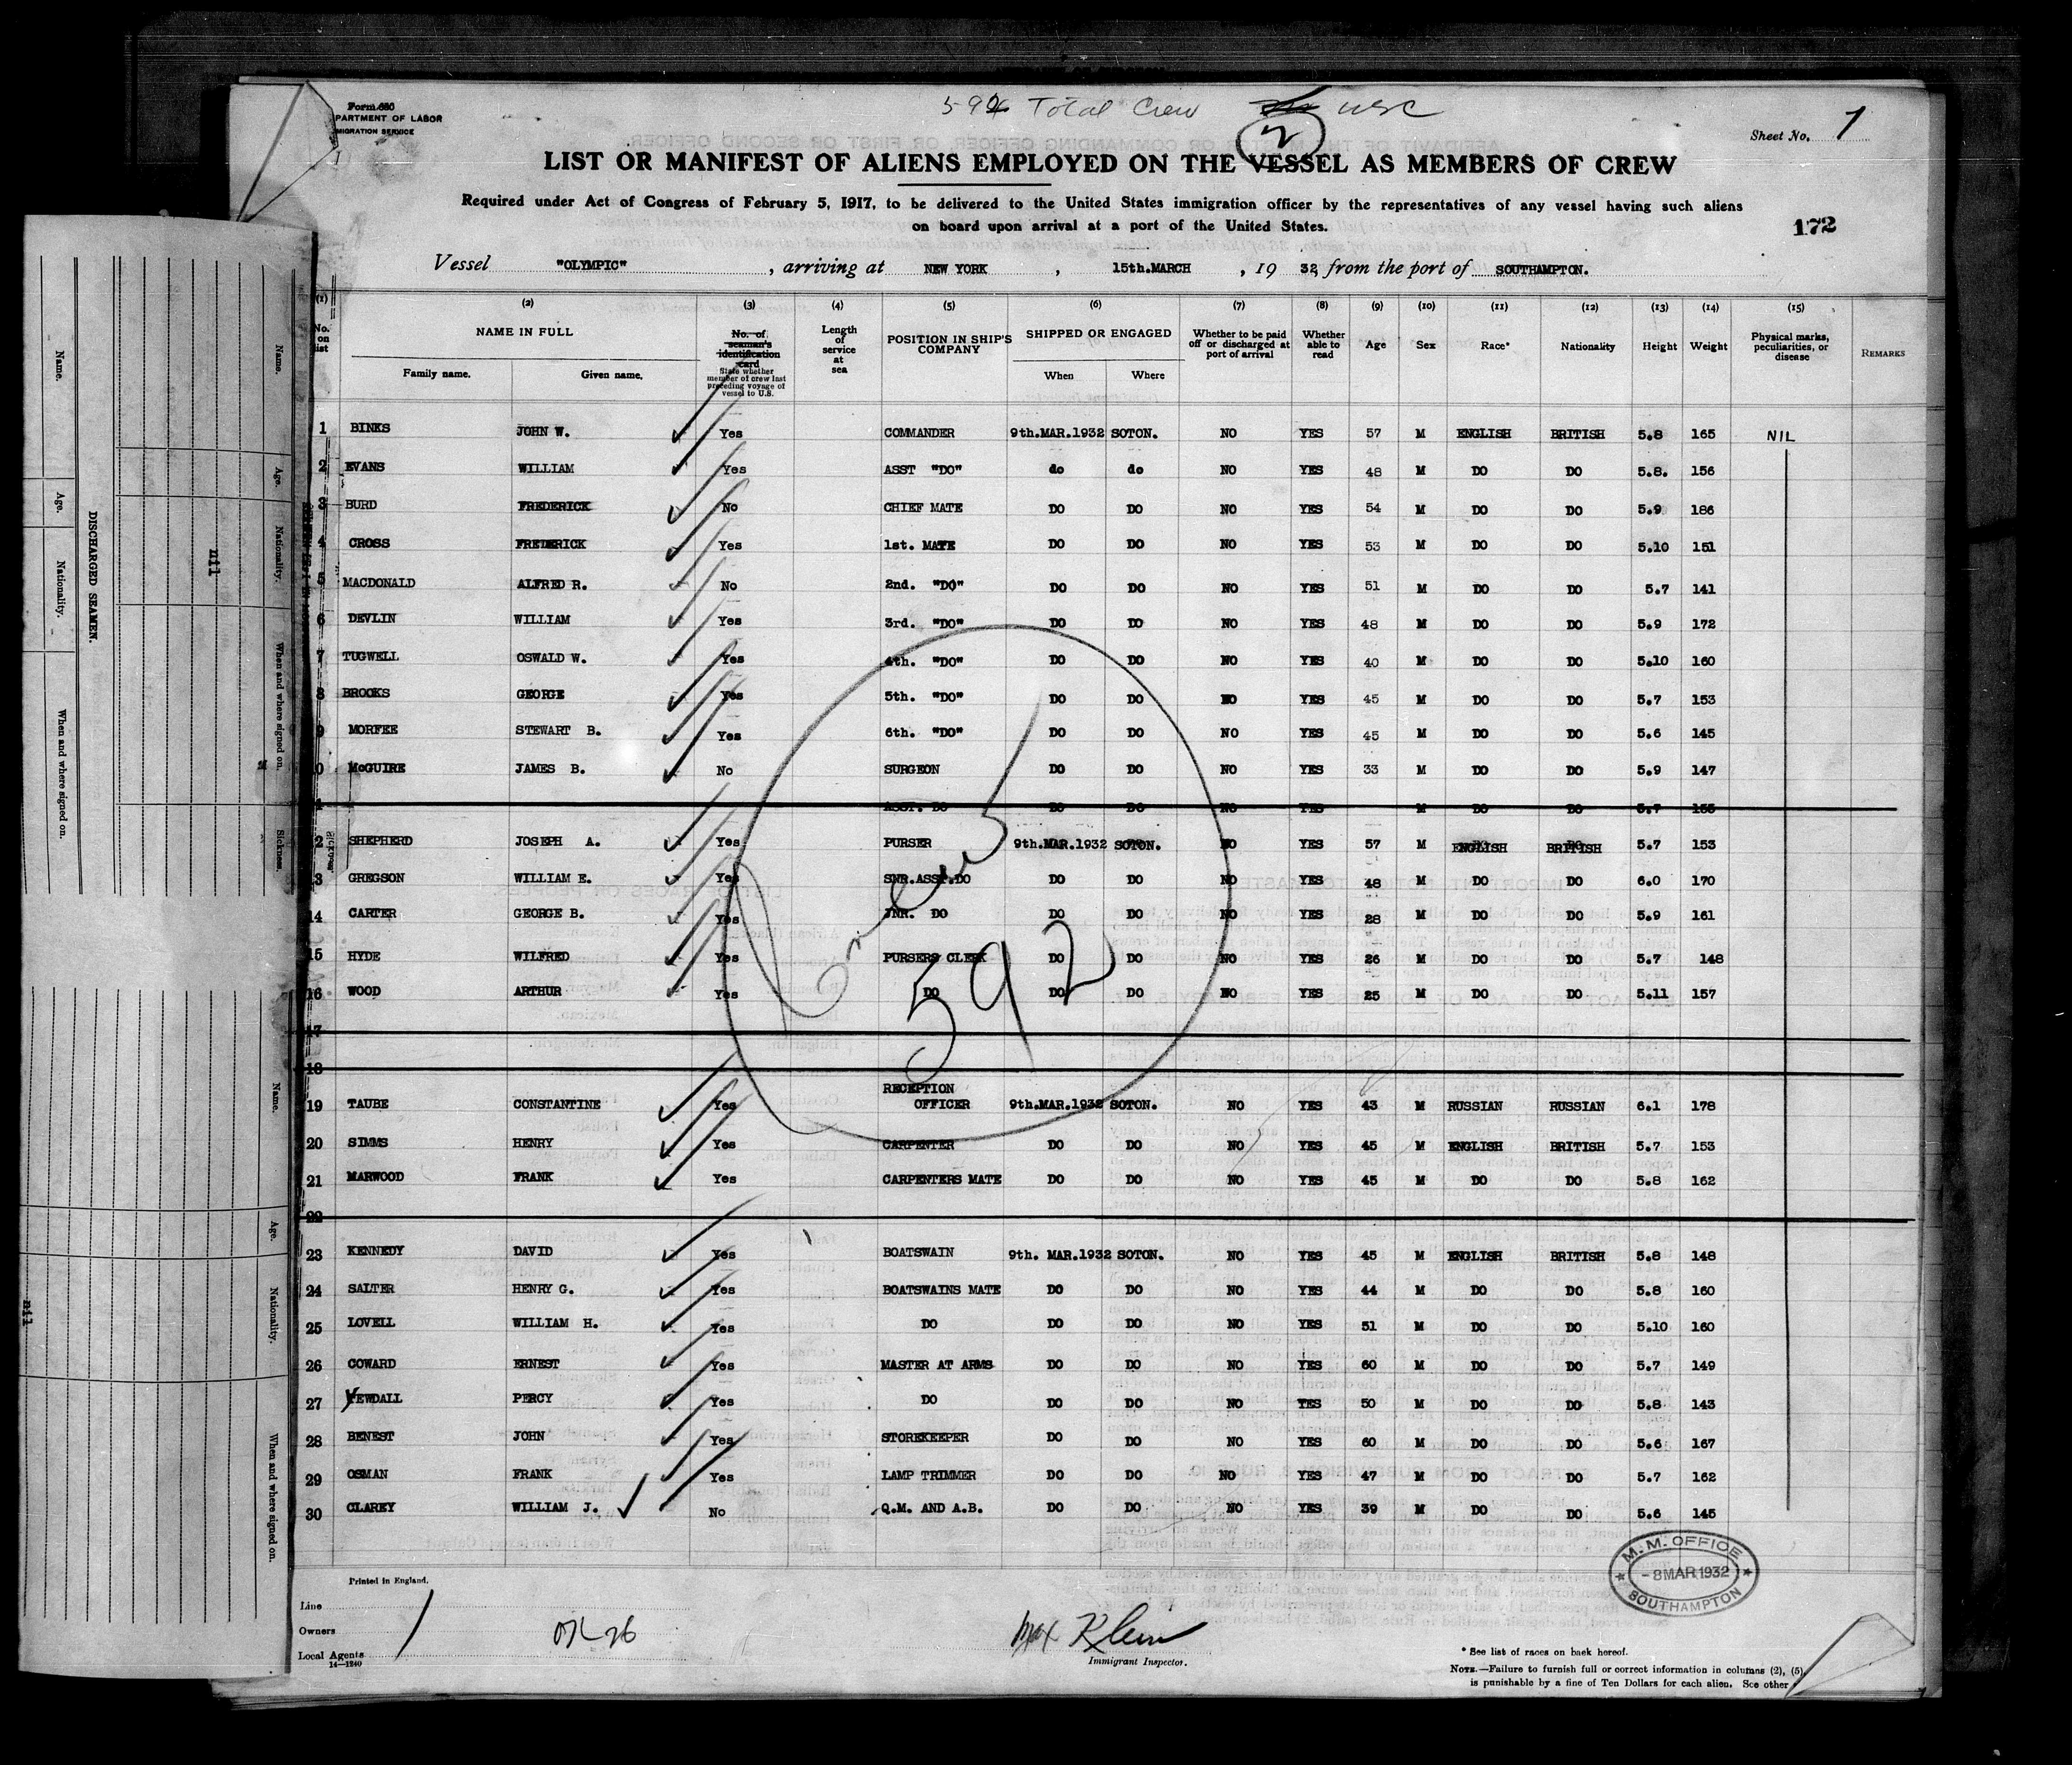 Form 680
PARTMENT OF LABOR
MIGRATION SERVICE
592 Total Crew
2
Sheet No. 1
LIST OR MANIFEST OF ALIENS EMPLOYED ON THE VESSEL AS MEMBERS OF CREW
Required under Act of Congress of February 5, 1917, to be delivered to the United States immigration officer by the representatives of any vessel having such aliens
on board upon arrival at a port of the United States.
172
Vessel "OLYMPIC", arriving at NEW YORK, 15th.MARCH, 19 32, from the port of SOUTHAMPTON.
(1) (2) (3) (4) (5) (6) (7) (8) (9) (10) (11) (12) (13) (14) (15)
No. on list NAME IN FULL Family name. Given name. No. of seaman's identification card State whether member of crew last preceding voyage of vessel to U.S. Length of service at sea POSITION IN SHIP'S COMPANY SHIPPED OR ENGAGED When Where Whether to be paid off or discharged at port of arrival Whether able to read Age Sex Race* Nationality Height Weight Physical marks, peculiarities, or disease REMARKS
1 BINKS JOHN W. Yes COMMANDER 9th.MAR.1932 SOTON. NO YES 57 M ENGLISH BRITISH 5.8 165 NIL
2 EVANS WILLIAM Yes ASST "DO" do do NO YES 48 M DO DO 5.8. 156
3 BURD FREDERICK No CHIEF MATE DO DO NO YES 54 M DO DO 5.9 186
4 CROSS FREDERICK Yes 1st. MATE DO DO NO YES 53 M DO DO 5.10 151
5 MACDONALD ALFRED R. No 2nd. "DO" DO DO NO YES 51 M DO DO 5.7 141
6 DEVLIN WILLIAM Yes 3rd. "DO" DO DO NO YES 48 M DO DO 5.9 172
7 TUGWELL OSWALD W. Yes 4th. "DO" DO DO NO YES 40 M DO DO 5.10 160
8 BROOKS GEORGE Yes 5th. "DO" DO DO NO YES 45 M DO DO 5.7 153
9 MORFEE STEWART B. Yes 6th. "DO" DO DO NO YES 45 M DO DO 5.6 145
0 McGUIRE JAMES B. No SURGEON DO DO NO YES 33 M DO DO 5.9 147
1 ASST. DO DO DO NO YES M DO DO 5.7 155
2 SHEPHERD JOSEPH A. Yes PURSER 9th.MAR.1932 SOTON. NO YES 57 M ENGLISH BRITISH 5.7 153
13 GREGSON WILLIAM E. Yes SNR.ASST.DO DO DO NO YES 48 M DO DO 6.0 170
14 CARTER GEORGE B. Yes JNR. DO DO DO NO YES 28 M DO DO 5.9 161
15 HYDE WILFRED Yes PURSERS CLERK DO DO NO YES 26 M DO DO 5.7 148
16 WOOD ARTHUR Yes DO DO DO NO YES 25 M DO DO 5.11 157
592
17
18
19 TAUBE CONSTANTINE Yes RECEPTION OFFICER 9th.MAR.1932 SOTON. NO YES 43 M RUSSIAN RUSSIAN 6.1 178
20 SIMMS HENRY Yes CARPENTER DO DO NO YES 45 M ENGLISH BRITISH 5.7 153
21 MARWOOD FRANK Yes CARPENTERS MATE DO DO NO YES 45 M DO DO 5.8 162
22
23 KENNEDY DAVID Yes BOATSWAIN 9th. MAR.1932 SOTON. NO YES 45 M ENGLISH BRITISH 5.8 148
24 SALTER HENRY G. Yes BOATSWAINS MATE DO DO NO YES 44 M DO DO 5.8 160
25 LOVELL WILLIAM H. Yes DO DO DO NO YES 51 M DO DO 5.10 160
26 COWARD ERNEST Yes MASTER AT ARMS DO DO NO YES 60 M DO DO 5.7 149
27 YEWDALL PERCY Yes DO DO DO NO YES 50 M DO DO 5.8 143
28 BENEST JOHN Yes STOREKEEPER DO DO NO YES 60 M DO DO 5.6 167
29 OSMAN FRANK Yes LAMP TRIMMER DO DO NO YES 47 M DO DO 5.7 162
30 CLAREY WILLIAM J. No Q.M. AND A.B. DO DO NO YES 39 M DO DO 5.6 145
M. M. OFFICE
-8 MAR 1932
SOUTHAMPTON
Printed in England.
Line
Owners
Local Agents
14-1240
Max Klein
Immigrant Inspector.
* See list of races on back hereof.
NOTE.—Failure to furnish full or correct information in columns (2), (5),
is punishable by a fine of Ten Dollars for each alien. See other
DISCHARGED SEAMEN.
Name. Age. Nationality. When and where signed on.
nil
Name. Age. Nationality. When and where signed on. Sickness.
Name. Age. Nationality. When and where signed on.
nil